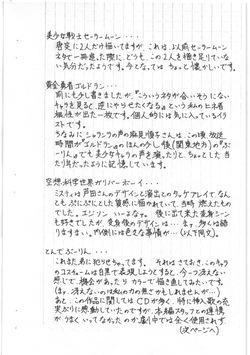 美少女戦士セーラームーン・・・・
唐突に2人だけ描いてますが、これは、以前セーラームーン
ネタで一冊描いた際に、どうも、この2人を描き足りていな
い気分だったようです。今となっては、ちょっと懐かしいです。
黄金勇者ゴルドラン・・・・
前にも少し書きましたが、「こういうネタが合いそうにない
キャラを見ると、逆にやりたくなる」という私のヒネ者
根性が出た一枚です。個人的には気に入っているイラ
ストです。
ちなみにシャランラの声の麻見順子さんは、この頃、放送
時間が「ゴルドラン」のほんの少し後(関東地方)の「ぶ
ーりん」でも美少女キャラの声を演ったりと、ちょっとした当
たり年だったように記憶しています。
空想科学世界ガリバーボーイ・・・・
ミスティは芦田さんのデザインと演出とのタッチプレイで、なん
とも、ぷにぷにとした質感に描かれていて、当時燃えたもの
でした。エジソン
でしたが、変身後のデザインは…ま、夢くは語り
ますまい。所側には色々な事情が…(以下同文)。
とんでぶーりん・・・・
これまた君に犯りせちゃってます。それはさておき、このキャラ
のコスチュームは白黒で表現しようとすると、今一つ冴えない
感じで、機会があったらカラーで描き直してみたいです。
(ま、冴えないのは私の力の無さかもしれませんが…)
あと、この作品に関しては、CDが多く、特に挿入歌の充
実ぶりに感動していたのですが、本編スタッフとの連携
がうまくいってなかったのか、劇中では全く使用されず
(次ページへ)